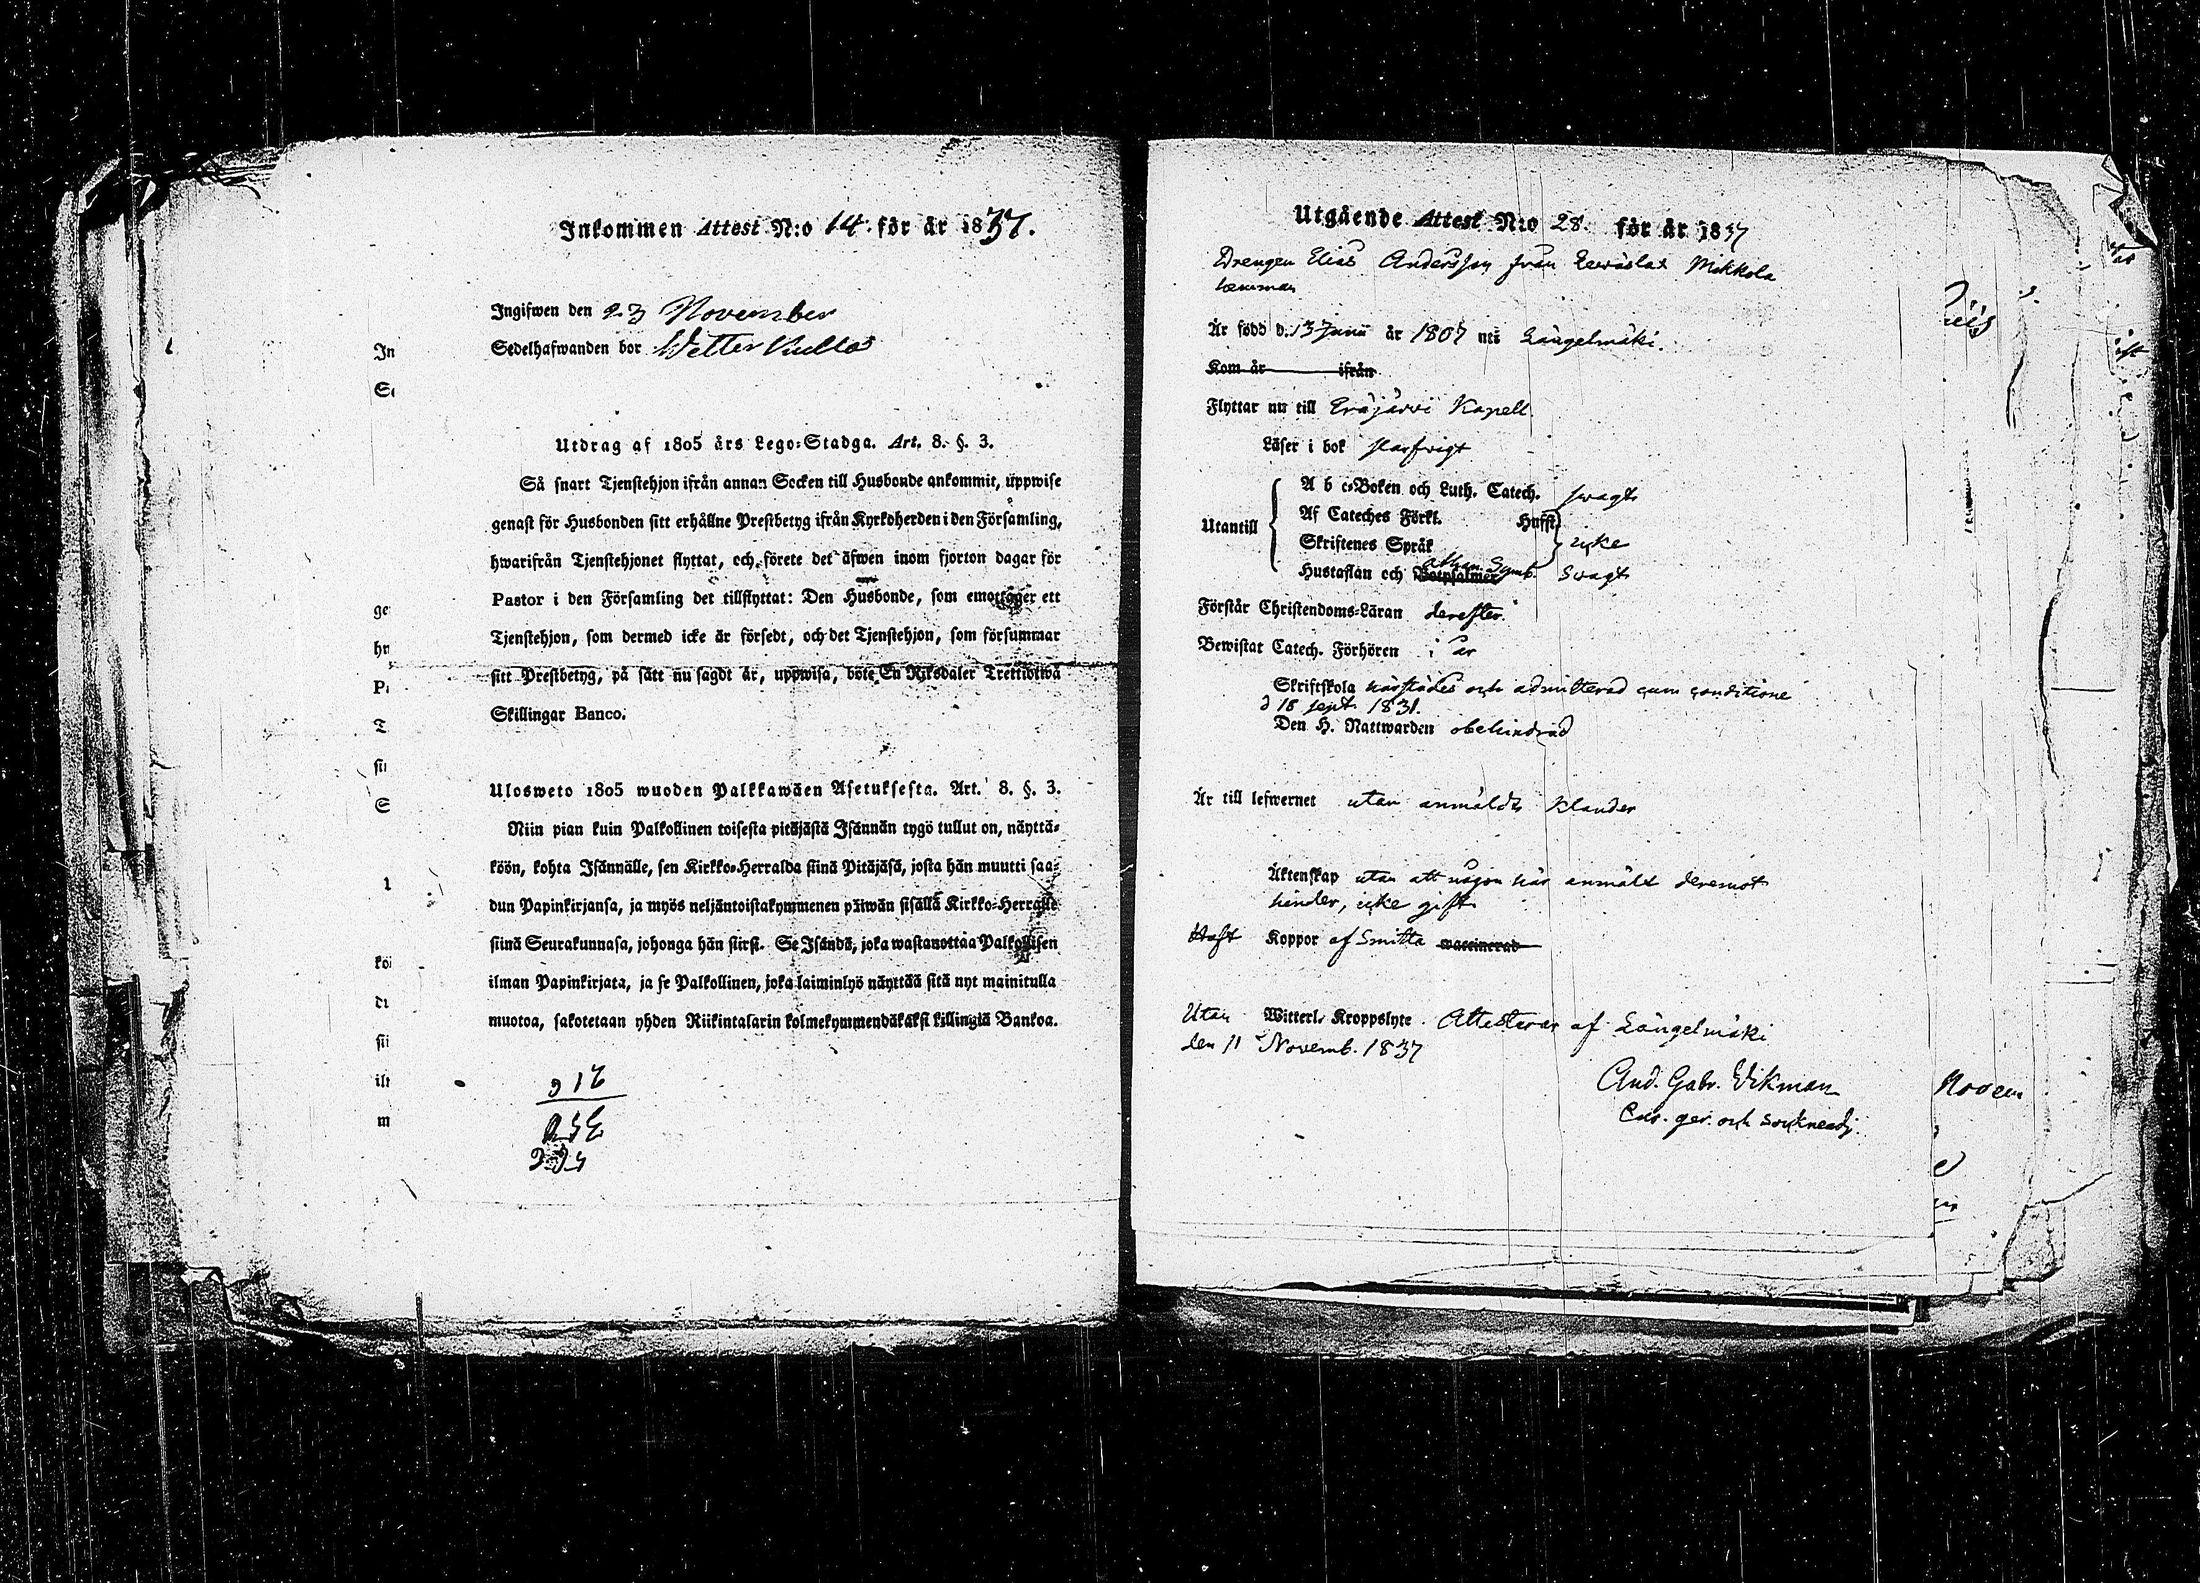 Inkommen Attest N:o 14. för år 1837.
Ingifwen den 23 November
Sedelhafwanden bor
Utdrag af 1805 års Lego-Stadga. Art. 8. §. 3.
Så snart Tjenstehjon ifrån annan Socken till Husbonde ankommit, uppwise
genast för Husbonden sitt erhållne Prestbetyg ifrån Kyrkoherden i den Församling,
hwarifrån Tjenstehjonet flyttat, och förete det äfwen inom fjorton dagar för
Pastor i den Församling det tillflyttat: Den Husbonde, som emottager ett
Tjenstehjon, som dermed icke är försedt, och det Tjenstehjon, som försummar
sitt Prestbetyg, på sätt nu sagdt är, uppwisa, böte En Riksdaler Trettiotwå
Skillingar Banco.
Ulosweto 1805 wuoden Palkkawäen Asetuksesta. Art. 8. §. 3.
Niin pian kuin Palkollinen toisesta pitäjästä Isännän tygö tullut on, näyttä-
köön, kohta Isännälle, sen Kirkko-Herralda siinä Pitäjäsä, josta hän muutti saa-
dun Papinkirjansa, ja myös neljäntoistakymmenen päiwän sisällä Kirkko-Herralle
siinä Seurakunnasa, johonga hän siirst. Se Isändä, joka wastanottaa Palkollisen
ilman Papinkirjata, ja se Palkollinen, joka laiminlyö näyttää sitä nyt mainitulla
muotoa, sakotetaan yhden Riikintalarin kolmekymmendäkaksi killingiä Bankoa.
Utgående Attest N:o 28. för år 1837
Drengen Elias Andersson från Mikkola
hemman
Är född d. 13 Junii år 1807 uti Längelmäki.
Kom år ifrån
Flyttar nu till Eräjärvi Kapell.
Läser i bok slarfwigt
A b c-Boken och Luth. Catech. swagt
Af Cateches Förkl. Husft.
Utantill
Skriftenes Språk icke
Athan. Symb.
Hustaflan och Botpsalmer Swagt
Förstår Christendoms-Läran derefter.
Bewistat Catech. Förhören i år
Skriftskola härstädes och admitterad cum conditione
d 18 sept. 1831.
Den H. Nattwarden obehindrad
Är till lefwernet utan anmäldt klander
Äktenskap utan att någon här anmält deremot
hinder, icke gift
Haft Koppor af Smitta waccinerad
Utan Witterl. Kroppslyte. Attesterar af Längelmäki
den 11 Novemb. 1837
And. Gabr. Wikman